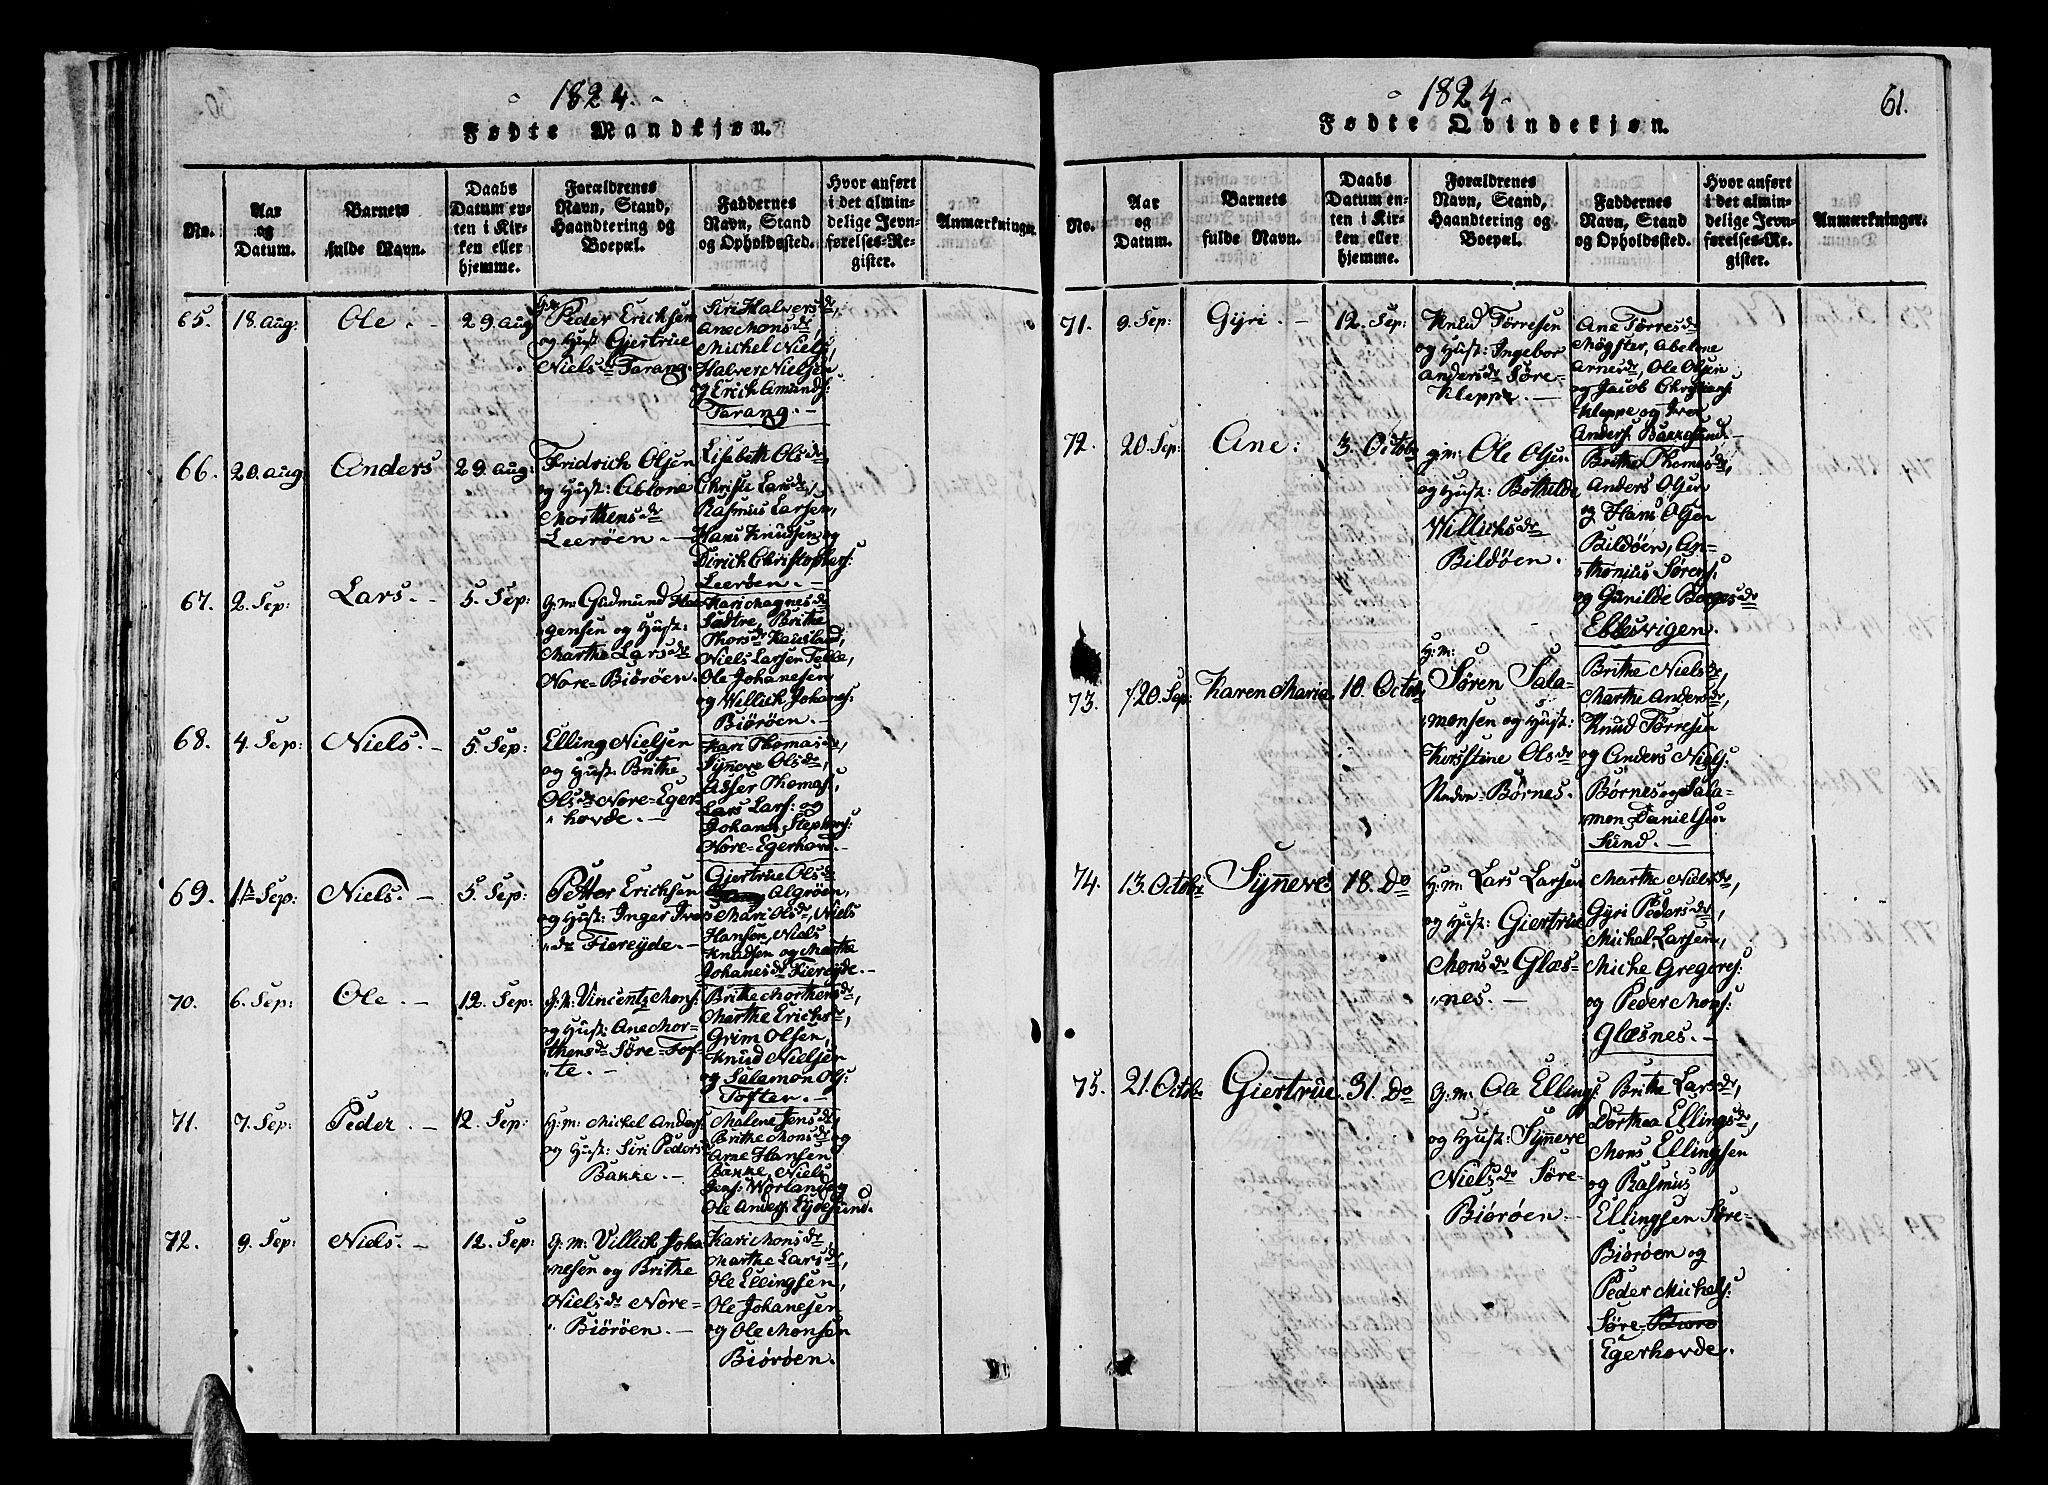 1824.
Fødte Mandkjøn.
No.
Aar
og
Datum.
Barnets
fulde Navn.
Daabs
Datum en-
ten i Kir-
ken eller
hjemme.
Forældrenes
Navn, Stand,
Haandtering og
Boepæl.
Faddernes
Navn, Stand
og Opholdssted.
Hvor anført
i det almin-
delige Jevn-
førelses-Re-
gister.
Anmærkninger.
65.
18. Aug:
Ole. –
29. Aug
g:m:
Peder Ericksen
og Hust: Gjertrue
Niels dr Tarang.
Siri Halvers dr,
Ane Mons dr,
Michel Niels:
Halver Nielsen
og Erick Amunds:
Tarang. –
66.
20. Aug
Anders
29. Aug:
Fridrich Olsen
og Hust: Ablone
Morthens dr
Leerøen. –
Lisabeth Ols dr
Christi Lars dr,
Rasmus Larsen,
Hans Knudsen og
Dirich Christophers:
Leerøen. –
67.
2. Sep:
Lars. –
5. Sep:
g:m: Gudmund Haa-
gensen og Hust:
Marthe Lars dr
Nore-Biørøen.
Kari Magnes dr
Sadtre, Brithe
Thors dr Kausland,
Niels Larsen Telle,
Ole Johanesen
og Willick Johanes:
Biørøen. –
68.
4. Sep:
Niels. –
5. Sep:
Elling Nielsen
og Hust: Brithe
Ols dr Nore-Eger-
hovde. –
Kari Thomas dr,
Synneve Ols dr,
Asser Thomas:
Lars Lars: og
Johanes Stephens:
Nore-Egerhovd. –
69.
Sep:
Niels. –
5. Sep:
Petter Ericksen
og Hust: Inger Ivers
dr Fiereyde. –
Gjertrue Ols dr
Algrøen,
Mari Ols dr, Niels
Hansen, Niels
Knudsen og Marthe
Johanes dr Fiereyde. –
70.
6. Sep:
Ole. –
12. Sep:
Vincentz Mons:
og Hust: Ane Mor-
thens dr Søre-Tof-
te. –
Brithe Morthens dr,
Marthe Erichs dr,
Grim Olsen,
Knud Nielsen
og Salamon Ols:
Tofter. –
71.
7. Sep:
Peder. –
12. Sep:
g:m: Michel Anders:
og Hust: Siri Peders
Bakke. –
Malene Jens dr
Brithe Mons dr og
Arne Hansen
Bakke, Niels
Jens: Worland og
Ole Anders: Eydesund.
72.
9. Sep:
Niels. –
12. Sep:
g:m: Villick Joha-
nesen og Brithe
Niels dr Nore-
Biørøen. –
Kari Mons dr,
Marthe Lars dr
Ole Ellingsen,
Ole Johanesen
og Ole Monsen
Biørøen.
1824.
61.
Fødte Qvindekjøn.
No.
Aar
og
Datum.
Barnets
fulde Navn.
Daabs
Datum en-
ten i Kir-
ken eller
hjemme.
Forældrenes
Navn, Stand,
Haandtering og
Boepæl.
Faddernes
Navn, Stand
og Opholdssted.
Hvor anført
i det almin-
delige Jevn-
førelses-Re-
gister.
Anmærkninger.
71.
9. Sep:
Gyri. –
12. Sep:
Knud Tørresen
og Hust: Ingebor
Anders dr Søre-
Kleppe. –
Ane Tørres dr
Møgster, Abelone
Arne dr, Ole Olsen
og Jacob Christians:
Kleppe og Iver
Anders: Bakkesund. –
72.
20. Sep:
Ane:
3. Octob
g:m: Ole Olsen
og Hust: Bothilde
Willicks dr
Bildøen.
Brithe Thomes dr,
Anders Olsen
og Hans Olsen
Bildøen, An-
thonius Sørens:
og Gunilde Børges dr
Ebbesvigen.
73.
20. Sep:
Karen Maria
10. Octob
g:m:
Søren Sala-
monsen og Hust:
Kirsstine Ols dr
Nedre-Børnes.
Brithe Niels dr,
Marthe Anders dr,
Knud Tørresen
og Anders Niels:
Børnes og Sala-
mon Danielsen
Sund. –
74.
13. Octob:
Synneve
18. Do
g:m: Lars Larsen
og Hust: Giertrue
Mons dr Glæs-
nes. –
Marthe Niels dr,
Gyri Peders dr,
Michel Larsen,
Miche Gregers:
og Peder Mons:
Glæsnes. –
75.
21. Octob:
Giertrue
31. Do
g:m: Ole Ellings:
og Hust: Synneve
Niels dr Søre-
Biørøen. –
Brithe Lars dr,
Dorthea Ellings dr,
Mons Ellingsen
og Rasmus
Ellingsen Søre-
Biørøen og
Peder Michels:
Søre-Biørø
Egerhovde.